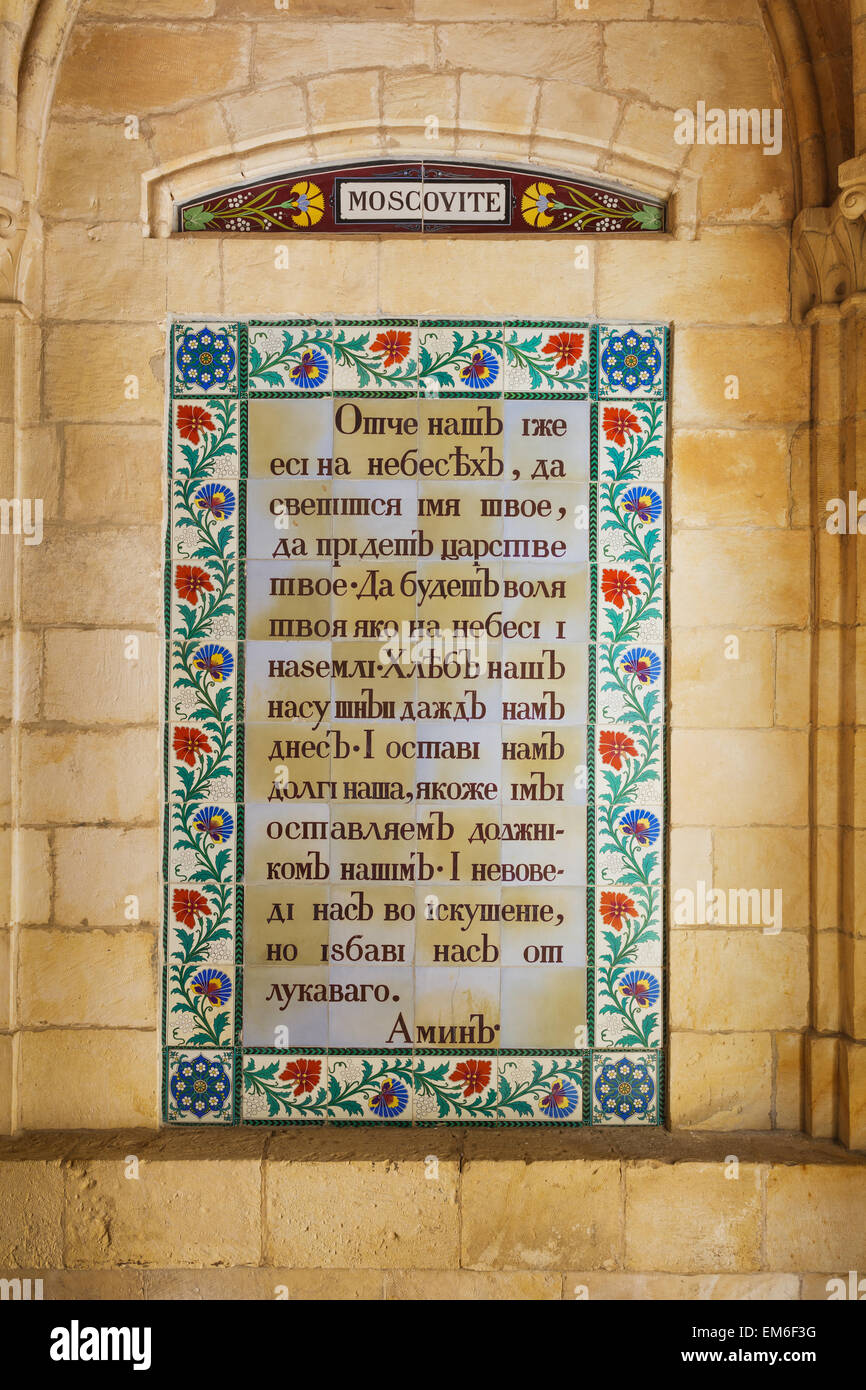 MOSCOVITE
Отче нашъ іже
есі на небесѣхъ, да
светітся імя твое,
да прідетъ царстве
твое·Да будетъ воля
твоя яко на небесі і
наѕемлі·Хлѣбъ нашъ
насу шнъі даждъ намъ
днесъ·І оставі намъ
долгі наша,якоже імъі
оставляемъ должні-
комъ нашімъ·І невове-
ді насъ во іскушеніе,
но іѕбаві насъ от
лукаваго.
Амінъ·
alamy
alamy
Image ID: EM6F3G
www.alamy.com